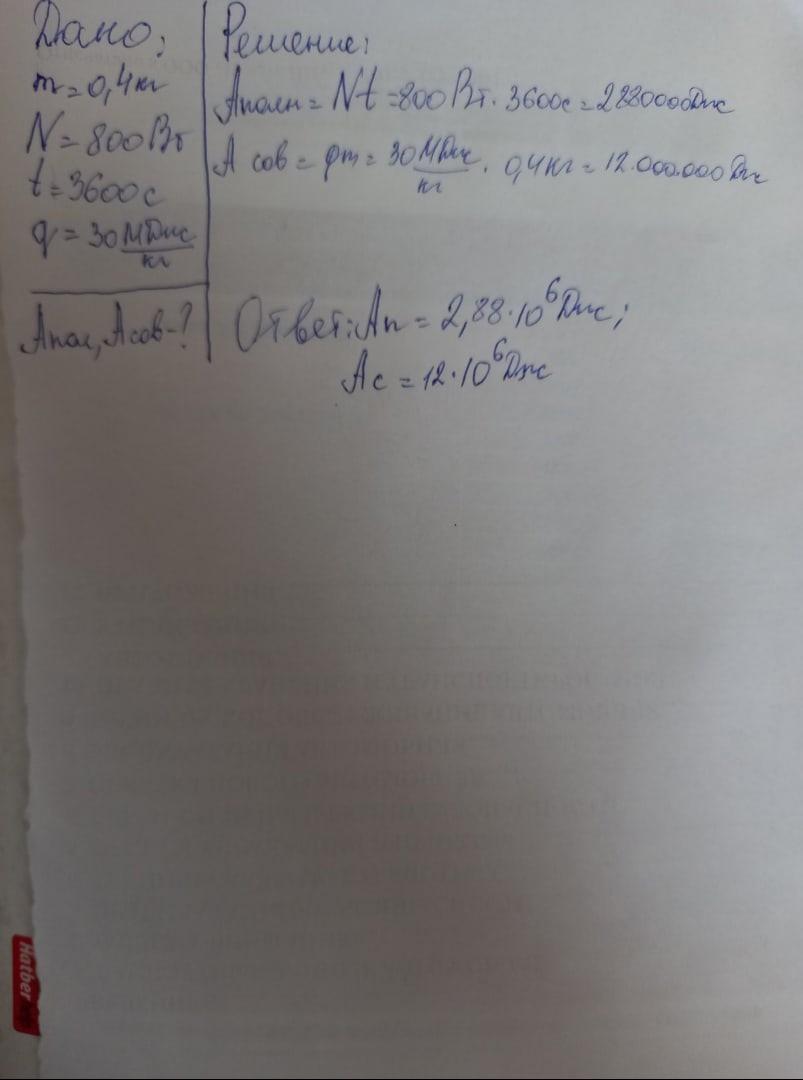 Дано:
m=0,4кг
N=800Вт
t=3600с
q=30МДж/кг
Апол, Асов-?
Решение:
Аполн=Nt=800Вт·3600с=2880000Дж
А сов=qm=30МДж/кг·0,4кг=12.000.000Дж
Ответ: Ап=2,88·10⁶Дж;
Ас=12·10⁶Дж
Hatber